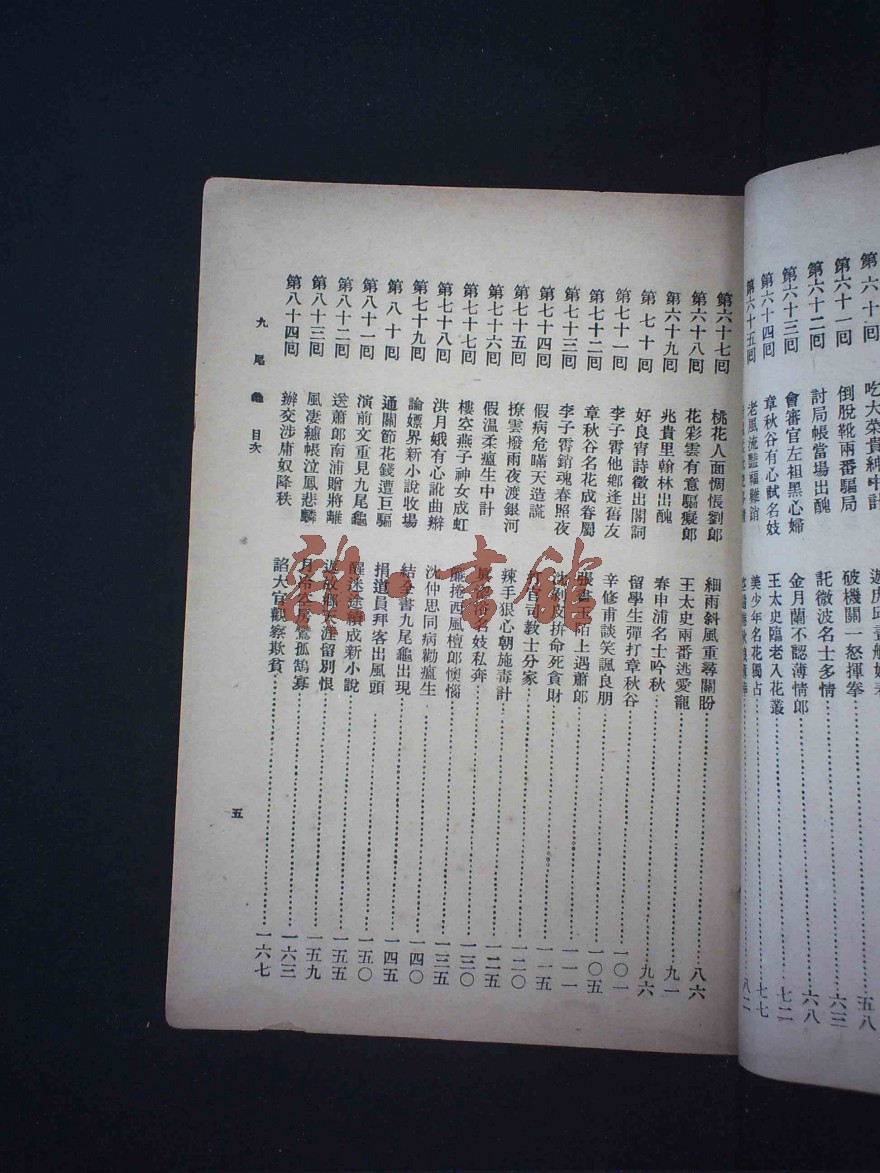 第六十回　吃大菜貴紳中計　五八
第六十一回　倒脫靴兩番騙局　破機關一怒揮拳　六三
第六十二回　討局帳當場出醜　託微波名士多情　六八
第六十三回　會審官左袒黑心婦　金月蘭不認薄情郎　七二
第六十四回　章秋谷有心試名妓　王太史臨老入花叢　七七
第六十五回　老風流豔福難銷　美少年名花獨占　八二
第六十七回　桃花人面惆悵劉郎　細雨斜風重尋關盼　八六
第六十八回　花彩雲有意騙癡郎　王太史兩番逃愛寵　九一
第六十九回　兆貴里翰林出醜　春申浦名士吟秋　九六
第七十回　好良宵詩徵出閣詞　留學生彈打章秋谷　一〇一
第七十一回　李子霄他鄉逢舊友　辛修甫談笑諷良朋　一〇五
第七十二回　章秋谷名花成眷屬　張書玉陌上遇蕭郎　一一一
第七十三回　李子霄銷魂春照夜　沈剝皮拚命死貪財　一一五
第七十四回　假病危瞞天造謊　打官司教士分家　一二〇
第七十五回　撩雲撥雨夜渡銀河　辣手狠心朝施毒計　一二五
第七十六回　假溫柔瘟生中計　名妓私奔　一三〇
第七十七回　樓空燕子神女成虹　簾捲西風檀郎懊惱　一三五
第七十八回　洪月娥有心訛曲辮　沈仲思同病勸瘟生　一四〇
第七十九回　論嫖界新小說收場　結全書九尾龜出現　一四五
第八十回　通關節花錢遭巨騙　捐道員拜客出風頭　一五〇
第八十一回　演前文重見九尾龜　醒迷途續成新小說　一五五
第八十二回　送蕭郎南浦贈將離　返故鄉天涯留別恨　一五九
第八十三回　風凄繐帳泣鳳悲麟　月冷空房鸞孤鵠寡　一六三
第八十四回　辦交涉庸奴降秩　諂大官觀察欺貧　一六七
九尾龜　目次　五
雜·書館